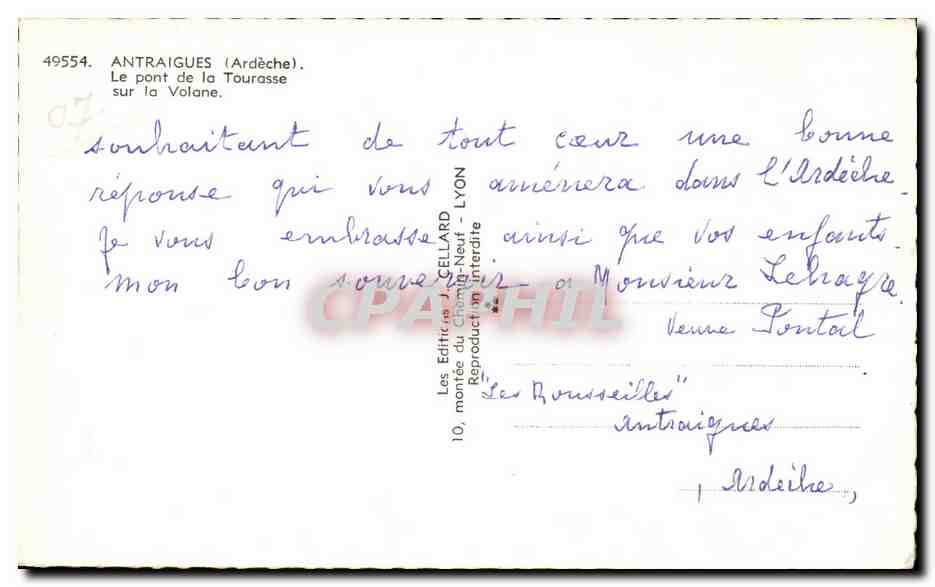 49554. ANTRAIGUES (Ardèche).
Le pont de la Tourasse
sur la Volane.
07
souhaitant de tout cœur une bonne
réponse qui vous aménera dans l'Ardèche.
Je vous embrasse ainsi que vos enfants.
mon bon souvenir a Monsieur Lehagre.
veuve Pontal
"Les Rousseilles"
Antraigues
Ardèche,
Les Editions J. CELLARD
10, montée du Chemin-Neuf - LYON
Reproduction interdite
CPAPHIL